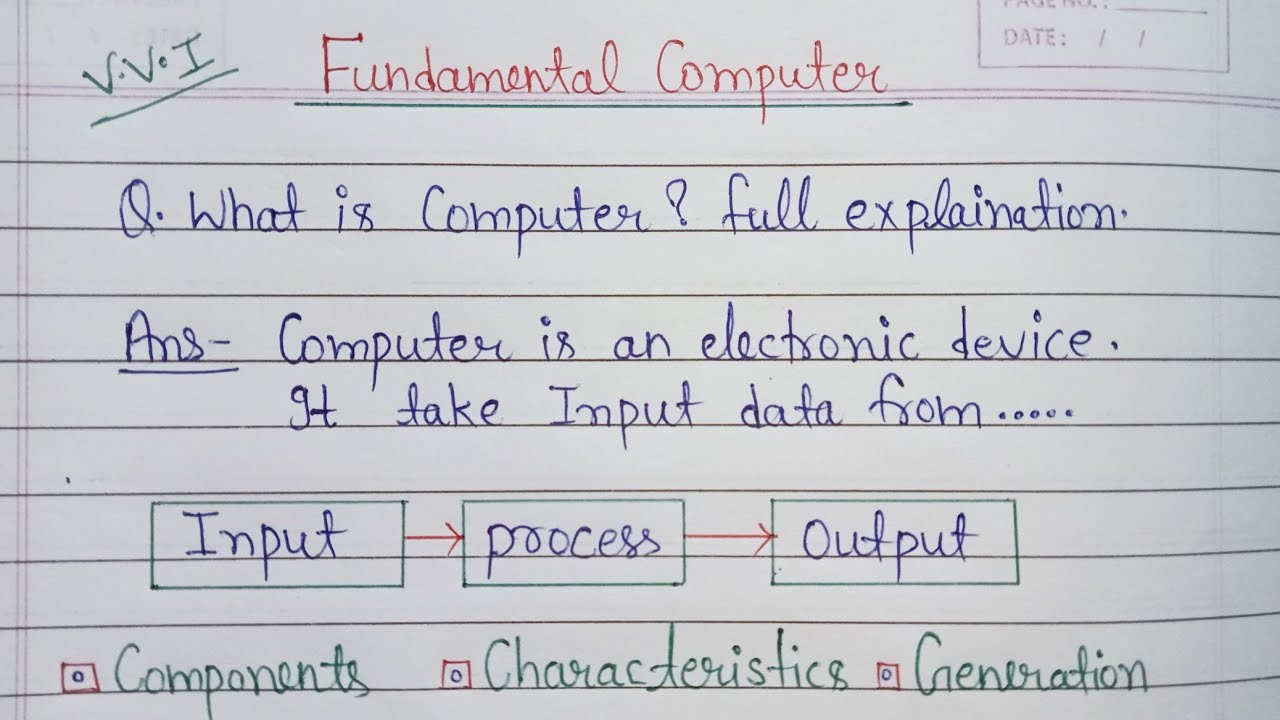 PAGE NO.:
DATE: / /
V.V.I Fundamental Computer
Q. What is Computer? full explaination.
Ans- Computer is an electronic device.
It take Input data from.....
Input → process → Output
Components Characteristics Generation